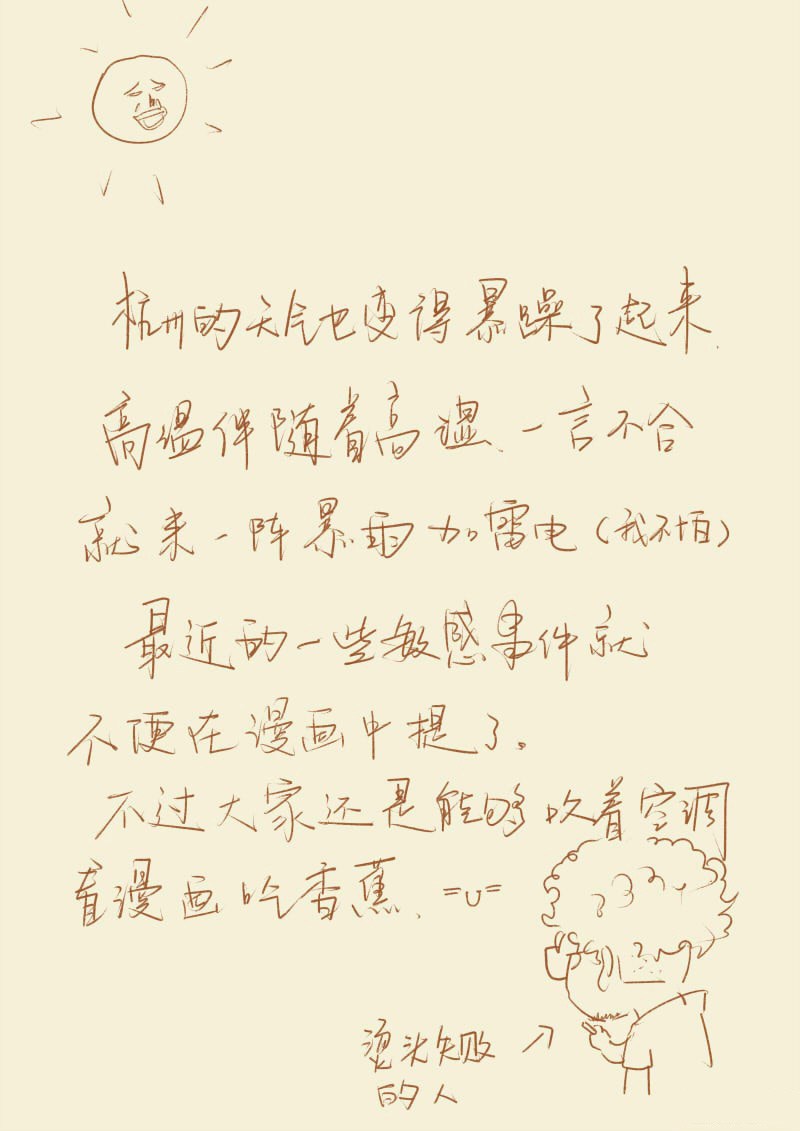 杭州的天气也变得暴躁了起来.
高温伴随着高湿、一言不合
就来一阵暴雨加雷电（我不怕）
最近的一些敏感事件就
不便在漫画中提了。
不过大家还是能够吹着空调
看漫画吃香蕉、=U=
烫头失败
的人